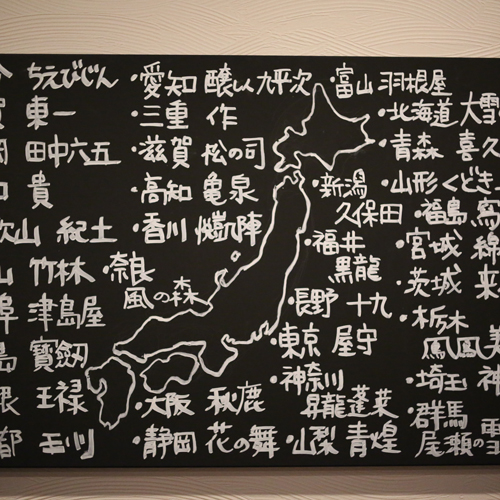 ちえびじん
東一
田中六五
貴
歌山 紀土
山 竹林
津島屋
島 寶劔
根 王禄
都 玉川
・愛知 醸し人九平次
・三重 作
・滋賀 松の司
・高知 亀泉
・香川 悦凱陣
・奈良
風の森
・大阪 秋鹿
・静岡 花の舞
・富山 羽根屋
・北海道 大雪
・青森 喜久
・新潟
久保田
・山形 くどき
・福島 寫
・福井
黒龍
・宮城 綿
・茨城 来
・長野 十九
・栃木
鳳凰美
・東京 屋守
・神奈川
昇龍蓬莱
・埼玉 神
・群馬
尾瀬の雪
・山梨 青煌